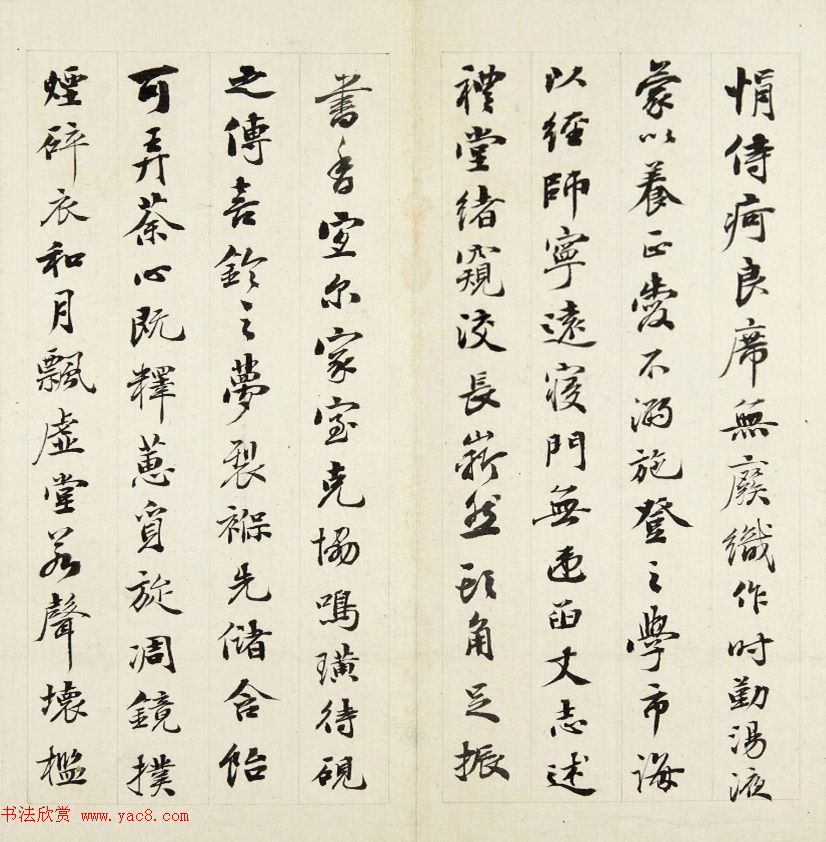 悁侍疴良席無廢織作時勤湯液
蒙以養正愛不溺施登之學市海
以經師寧遠寢門無違函丈志述
禮堂緒窺汲長嶄然頭角足振
書香室尔家室克協鳴璜待硯
之傳喜鈴之夢製褓先儲含飴
可弄荼心既釋蕙質旋凋鏡撲
煙碎衣和月飄虛堂若聲壞檻
书法欣赏 www.yac8.com